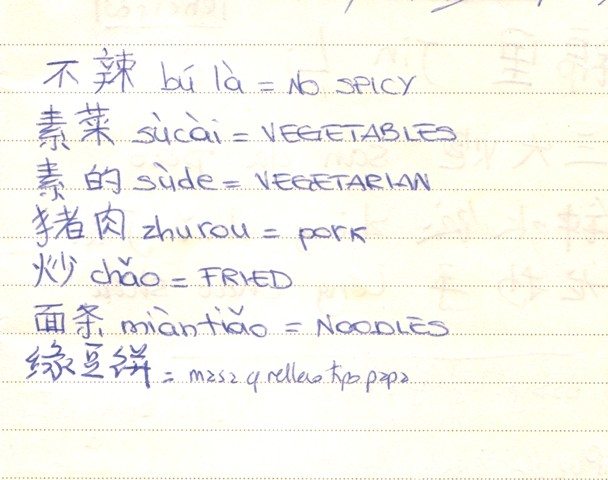 不辣 bú là = NO SPICY
素菜 sùcài = VEGETABLES
素的 sùde = VEGETARIAN
猪肉 zhurou = pork
炒 chǎo = FRIED
面条 miàntiǎo = NOODLES
缘豆饼 = masa q relleno tipo papa